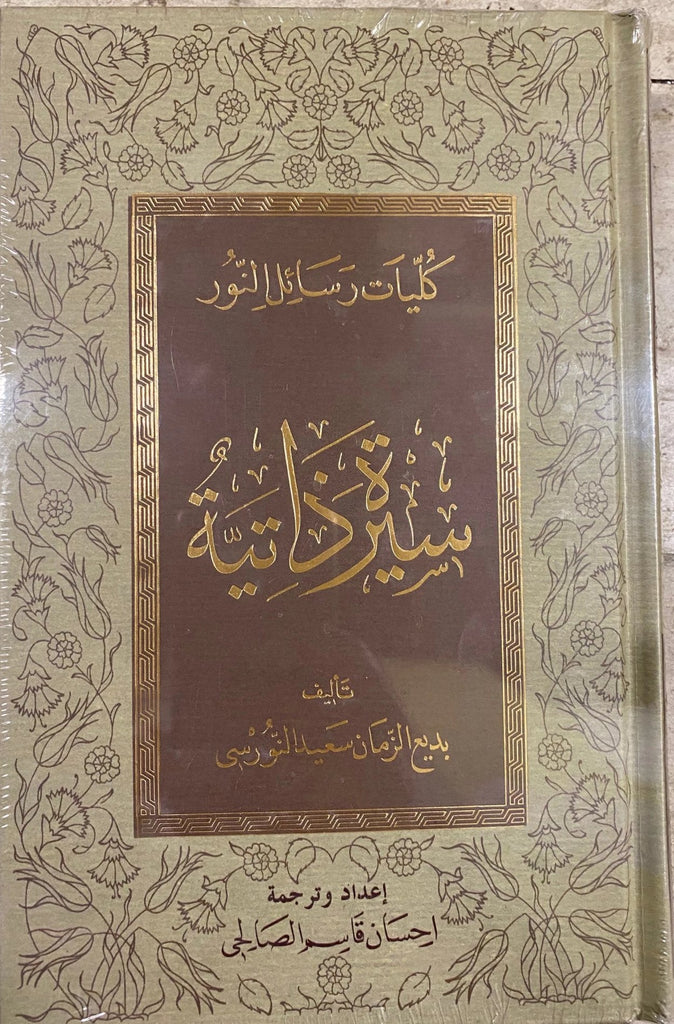 كُلِّيَات رَسَائِل النُّور
سِيرَة ذَاتِيَّة
تَأليف
بديع الزّمَان سَعيد النُّورْسِي
إعداد وترجمة
إحسَان قَاسِم الصَالحِي